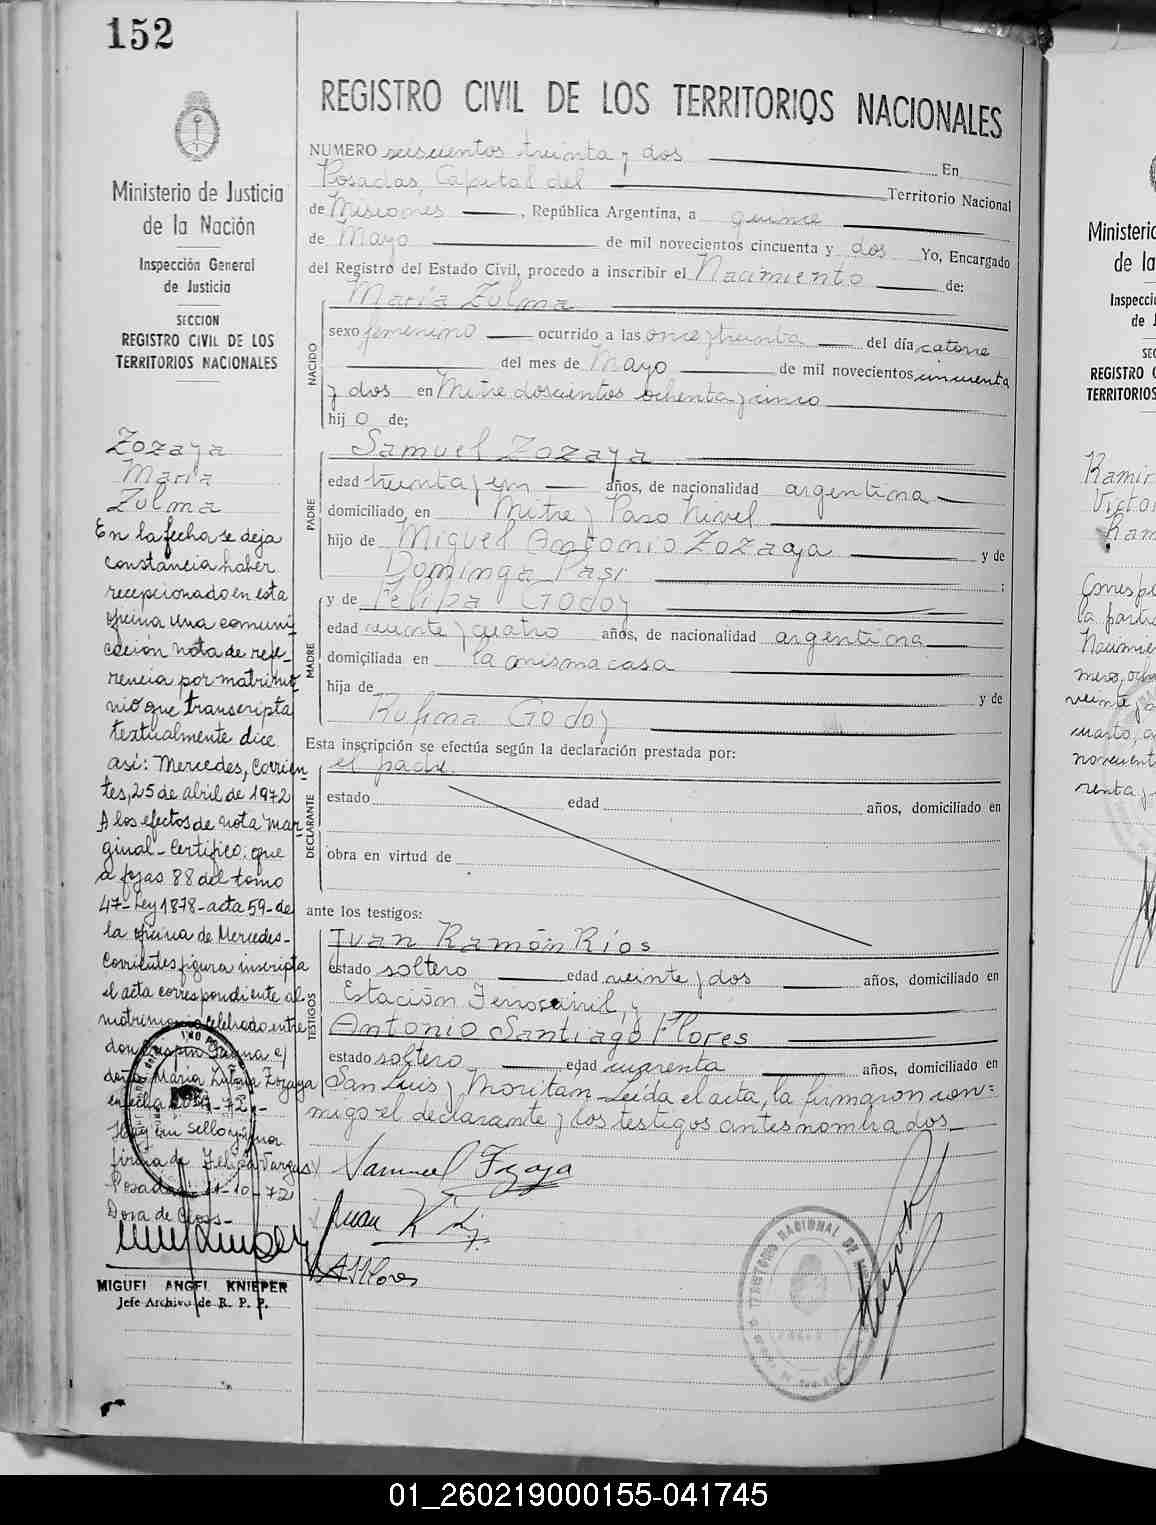 152
Ministerio de Justicia
de la Nación
Inspección General
de Justicia
SECCION
REGISTRO CIVIL DE LOS
TERRITORIOS NACIONALES
Zozaya
María
Zulma
En la fecha se deja
constancia haber
recepcionado en esta
oficina una comuni-
cación nota de refe-
rencia por matrimo-
nio que transcripta
textualmente dice
así: Mercedes, Corrien
tes, 25 de abril de 1972
A los efectos de nota mar
ginal - Certifico: que
a fojas 88 del tomo
47 - Ley 1878 - acta 59 - de
la oficina de Mercedes -
Corrientes figura inscripta
el acta correspondiente al
matrimonio celebrado entre
don Crispín Gauna c/
doña María Zulma Zozaya
en fecha
Hay un sello y una
firma de Felipa Vargas
Posadas 11-10-72
Dora de
MIGUEL ANGEL KNIEPER
Jefe Archivo de R. P. P.
REGISTRO CIVIL DE LOS TERRITORIOS NACIONALES
NUMERO seiscientos treinta y dos En
Posadas, Capital del Territorio Nacional
de Misiones, República Argentina, a quince
de Mayo de mil novecientos cincuenta y dos Yo, Encargado
del Registro del Estado Civil, procedo a inscribir el Nacimiento de:
María Zulma
NACIDO
sexo femenino ocurrido a las once y treinta del día catorce
del mes de Mayo de mil novecientos cincuenta
y dos en Mitre doscientos ochenta y cinco
hij o de;
PADRE
Samuel Zozaya
edad treinta y un años, de nacionalidad argentina
domiciliado en Mitre y Paso Nivel
hijo de Miguel Antonio Zozaya y de
Dominga Pasi ;
MADRE
y de Felipa Godoy
edad veinte y cuatro años, de nacionalidad argentina
domiciliada en la misma casa
hija de y de
Rufina Godoy
Esta inscripción se efectúa según la declaración prestada por:
DECLARANTE
el padre.
estado edad años, domiciliado en
obra en virtud de
ante los testigos:
TESTIGOS
Juan Ramón Ríos
estado soltero edad veinte y dos años, domiciliado en
Estación Ferrocarril, y
Antonio Santiago Flores
estado soltero edad cuarenta años, domiciliado en
San Luis y Moritan - Leída el acta, la firmaron con=
migo el declarante y los testigos antes nombrados.
Samuel Zozaya
Juan R
A S Flores
TERRITORIO NACIONAL DE
Ministerio
de la
Inspecci
de J
SEC
REGISTRO C
TERRITORIOS
Ramir
Victor
Ram
01_260219000155-041745